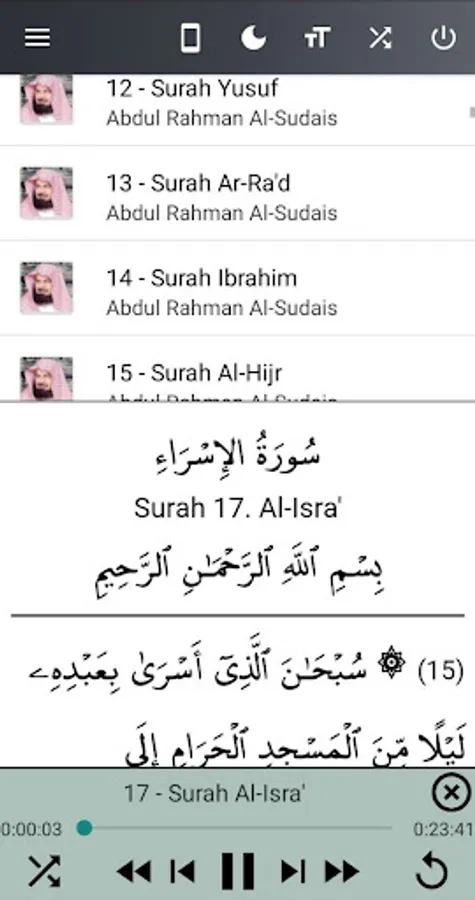 12 - Surah Yusuf
Abdul Rahman Al-Sudais
13 - Surah Ar-Ra'd
Abdul Rahman Al-Sudais
14 - Surah Ibrahim
Abdul Rahman Al-Sudais
15 - Surah Al-Hijr
Abdul Rahman Al-Sudais
سُورَةُ الإِسْرَاءِ
Surah 17. Al-Isra'
بِسْمِ ٱللَّهِ ٱلرَّحْمَـٰنِ ٱلرَّحِيمِ
(15) ۞ سُبْحَـٰنَ ٱلَّذِىٓ أَسْرَىٰ بِعَبْدِهِۦ
لَيْلًا مِّنَ ٱلْمَسْجِدِ ٱلْحَرَامِ إِلَى
17 - Surah Al-Isra'
0:00:03 0:23:41